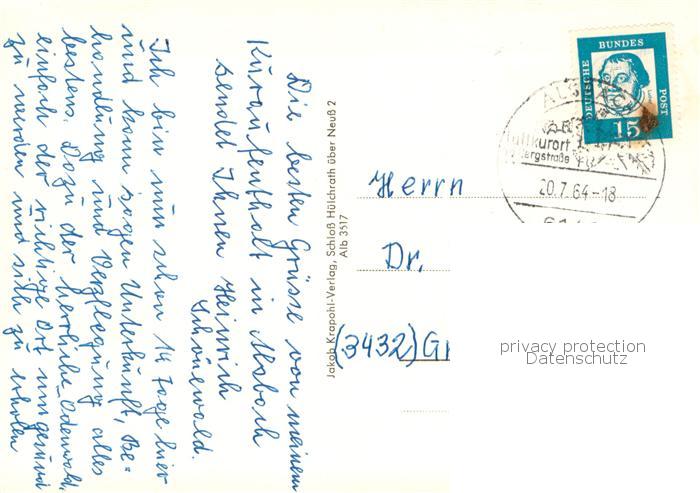 Die besten Grüsse von meinem
Kuraufenthalt in Albach
sendet Ihnen Heinrich
Schönewald.
Ich bin nun schon 14 Tage hier
und kann sagen Unterkunft, Be=
handlung und Verpflegung alles
bestens. Dazu der herrliche Odenwald,
einfach der richtige Ort um gesund
zu werden und sich zu erholen
Jakob Krapohl-Verlag, Schloß Hülchrath über Neuß 2
Alb 3517
DEUTSCHE BUNDES POST
15
Luftkurort
Bergstraße
20.7.64-18
Herrn
Dr.
(3432) Gr
privacy protection
Datenschutz